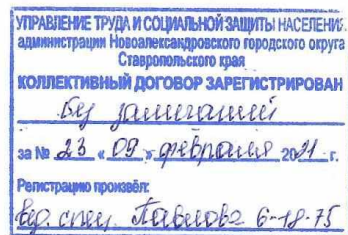 УПРАВЛЕНИЕ ТРУДА И СОЦИАЛЬНОЙ ЗАЩИТЫ НАСЕЛЕНИЯ
администрации Новоалександровского городского округа
Ставропольского края
КОЛЛЕКТИВНЫЙ ДОГОВОР ЗАРЕГИСТРИРОВАН
без замечаний
за № 23 « 09 » февраля 2021 г.
Регистрацию произвёл:
вед. спец. Павлова 6-18-75